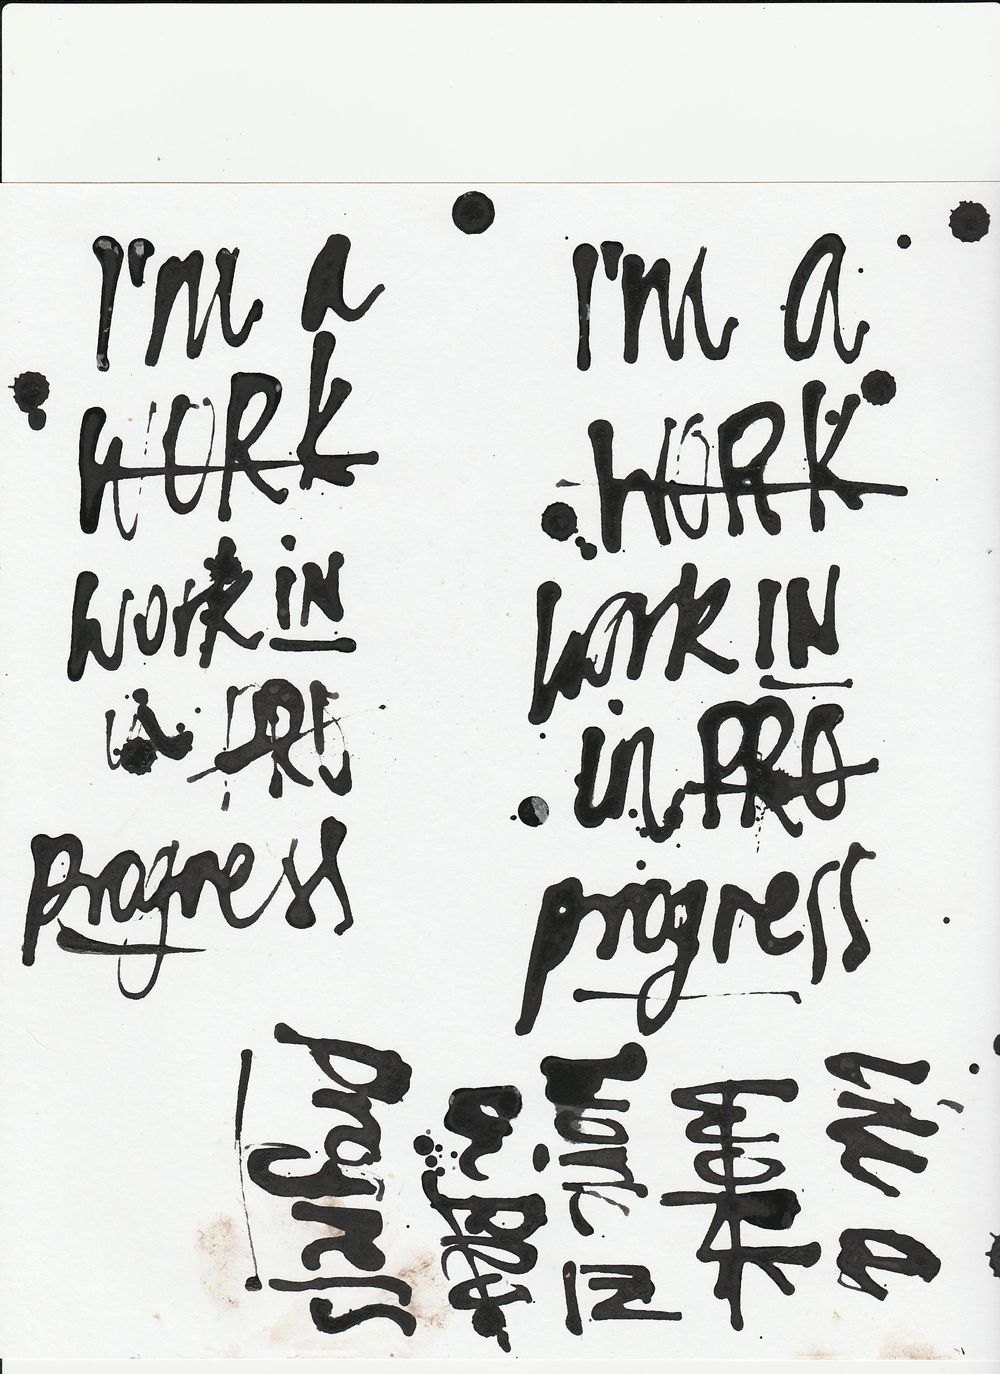 I'm a
WORK
work IN
in PRO
progress
I'm a
WORK
work IN
in PRO
progress
I'm a
WORK
work IN
in PRO
progress